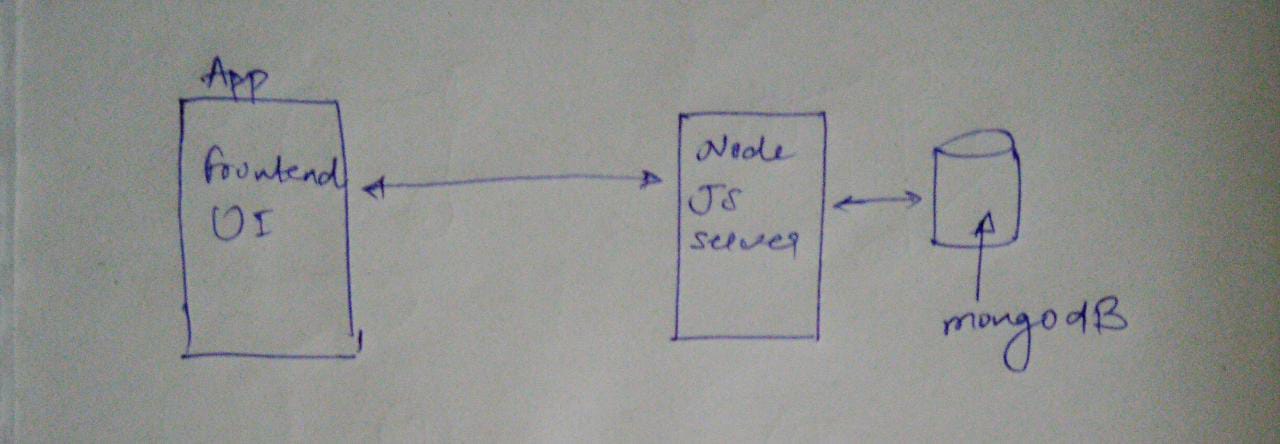 App
frontend
UI
Node
JS
server
mongodB